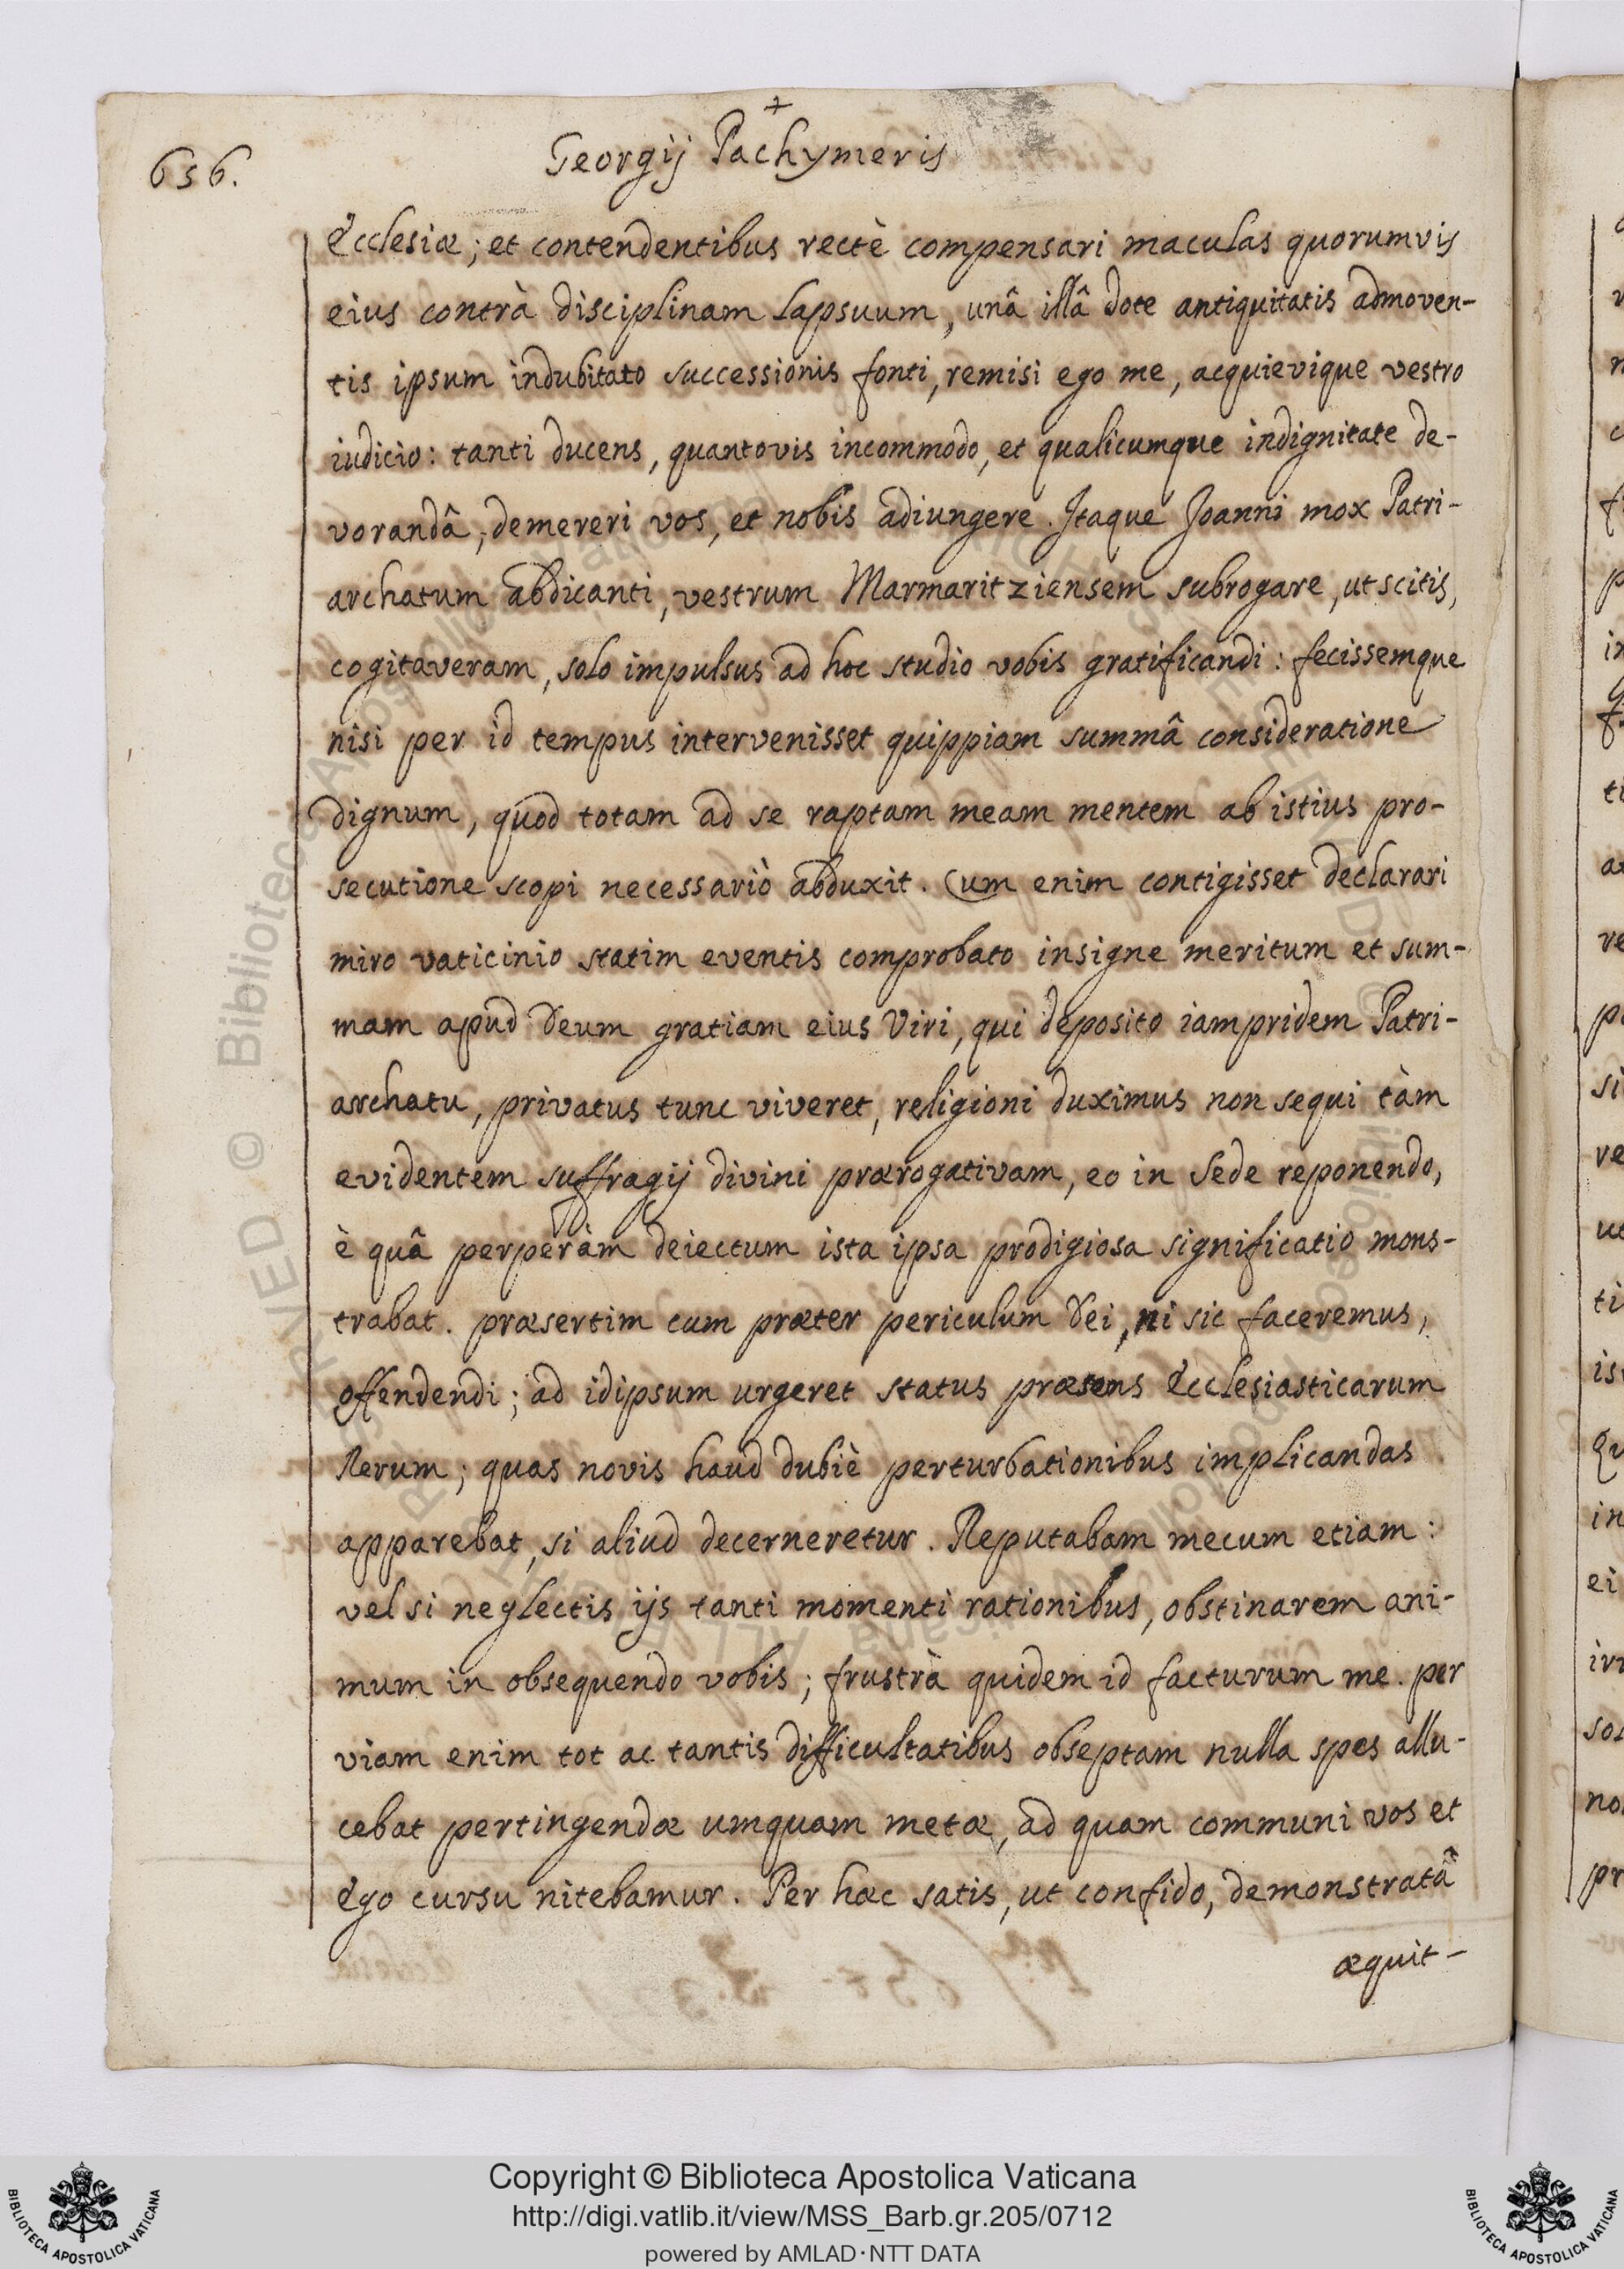 656.
Georgij Pachymeris
Ecclesiæ; et contendentibus rectè compensari maculas quorumvis
eius contrà disciplinam lapsuum, unâ illâ dote antiquitatis admoven-
tis ipsum indubitato successionis fonti, remisi ego me, acquievique vestro
iudicio: tanti ducens, quantovis incommodo, et qualicumque indignitate de-
vorandâ, demereri vos, et nobis adiungere. Itaque Joanni mox Patri-
archatum abdicanti, vestrum Marmaritziensem subrogare, ut scitis,
cogitaveram, solo impulsus ad hoc studio vobis gratificandi: fecissemque
nisi per id tempus intervenisset quippiam summâ consideratione
dignum, quod totam ad se raptam meam mentem ab istius pro-
secutione scopi necessariò abduxit. Cum enim contigisset declarari
miro vaticinio statim eventis comprobato insigne meritum et sum-
mam apud Deum gratiam eius Viri, qui deposito iampridem Patri-
archatu, privatus tunc viveret, religioni duximus non sequi tàm
evidentem suffragij divini prærogativam, eo in Sede reponendo,
è quâ perperàm deiectum ista ipsa prodigiosa significatio mons-
trabat. præsertim cum præter periculum Dei, ni sic faceremus,
offendendi; ad idipsum urgeret status præsens Ecclesiasticarum
Rerum; quas novis haud dubiè perturbationibus implicandas
apparebat, si aliud decerneretur. Reputabam mecum etiam:
vel si neglectis ijs tanti momenti rationibus, obstinarem ani-
mum in obsequendo vobis; frustrà quidem id facturum me. per
viam enim tot ac tantis difficultatibus obseptam nulla spes allu-
cebat pertingendæ umquam metæ, ad quam communi vos et
ego cursu nitebamur. Per hæc satis, ut confido, demonstratâ
æquit-
Copyright © Biblioteca Apostolica Vaticana
http://digi.vatlib.it/view/MSS_Barb.gr.205/0712
powered by AMLAD·NTT DATA
BIBLIOTECA APOSTOLICA VATICANA
BIBLIOTECA APOSTOLICA VATICANA